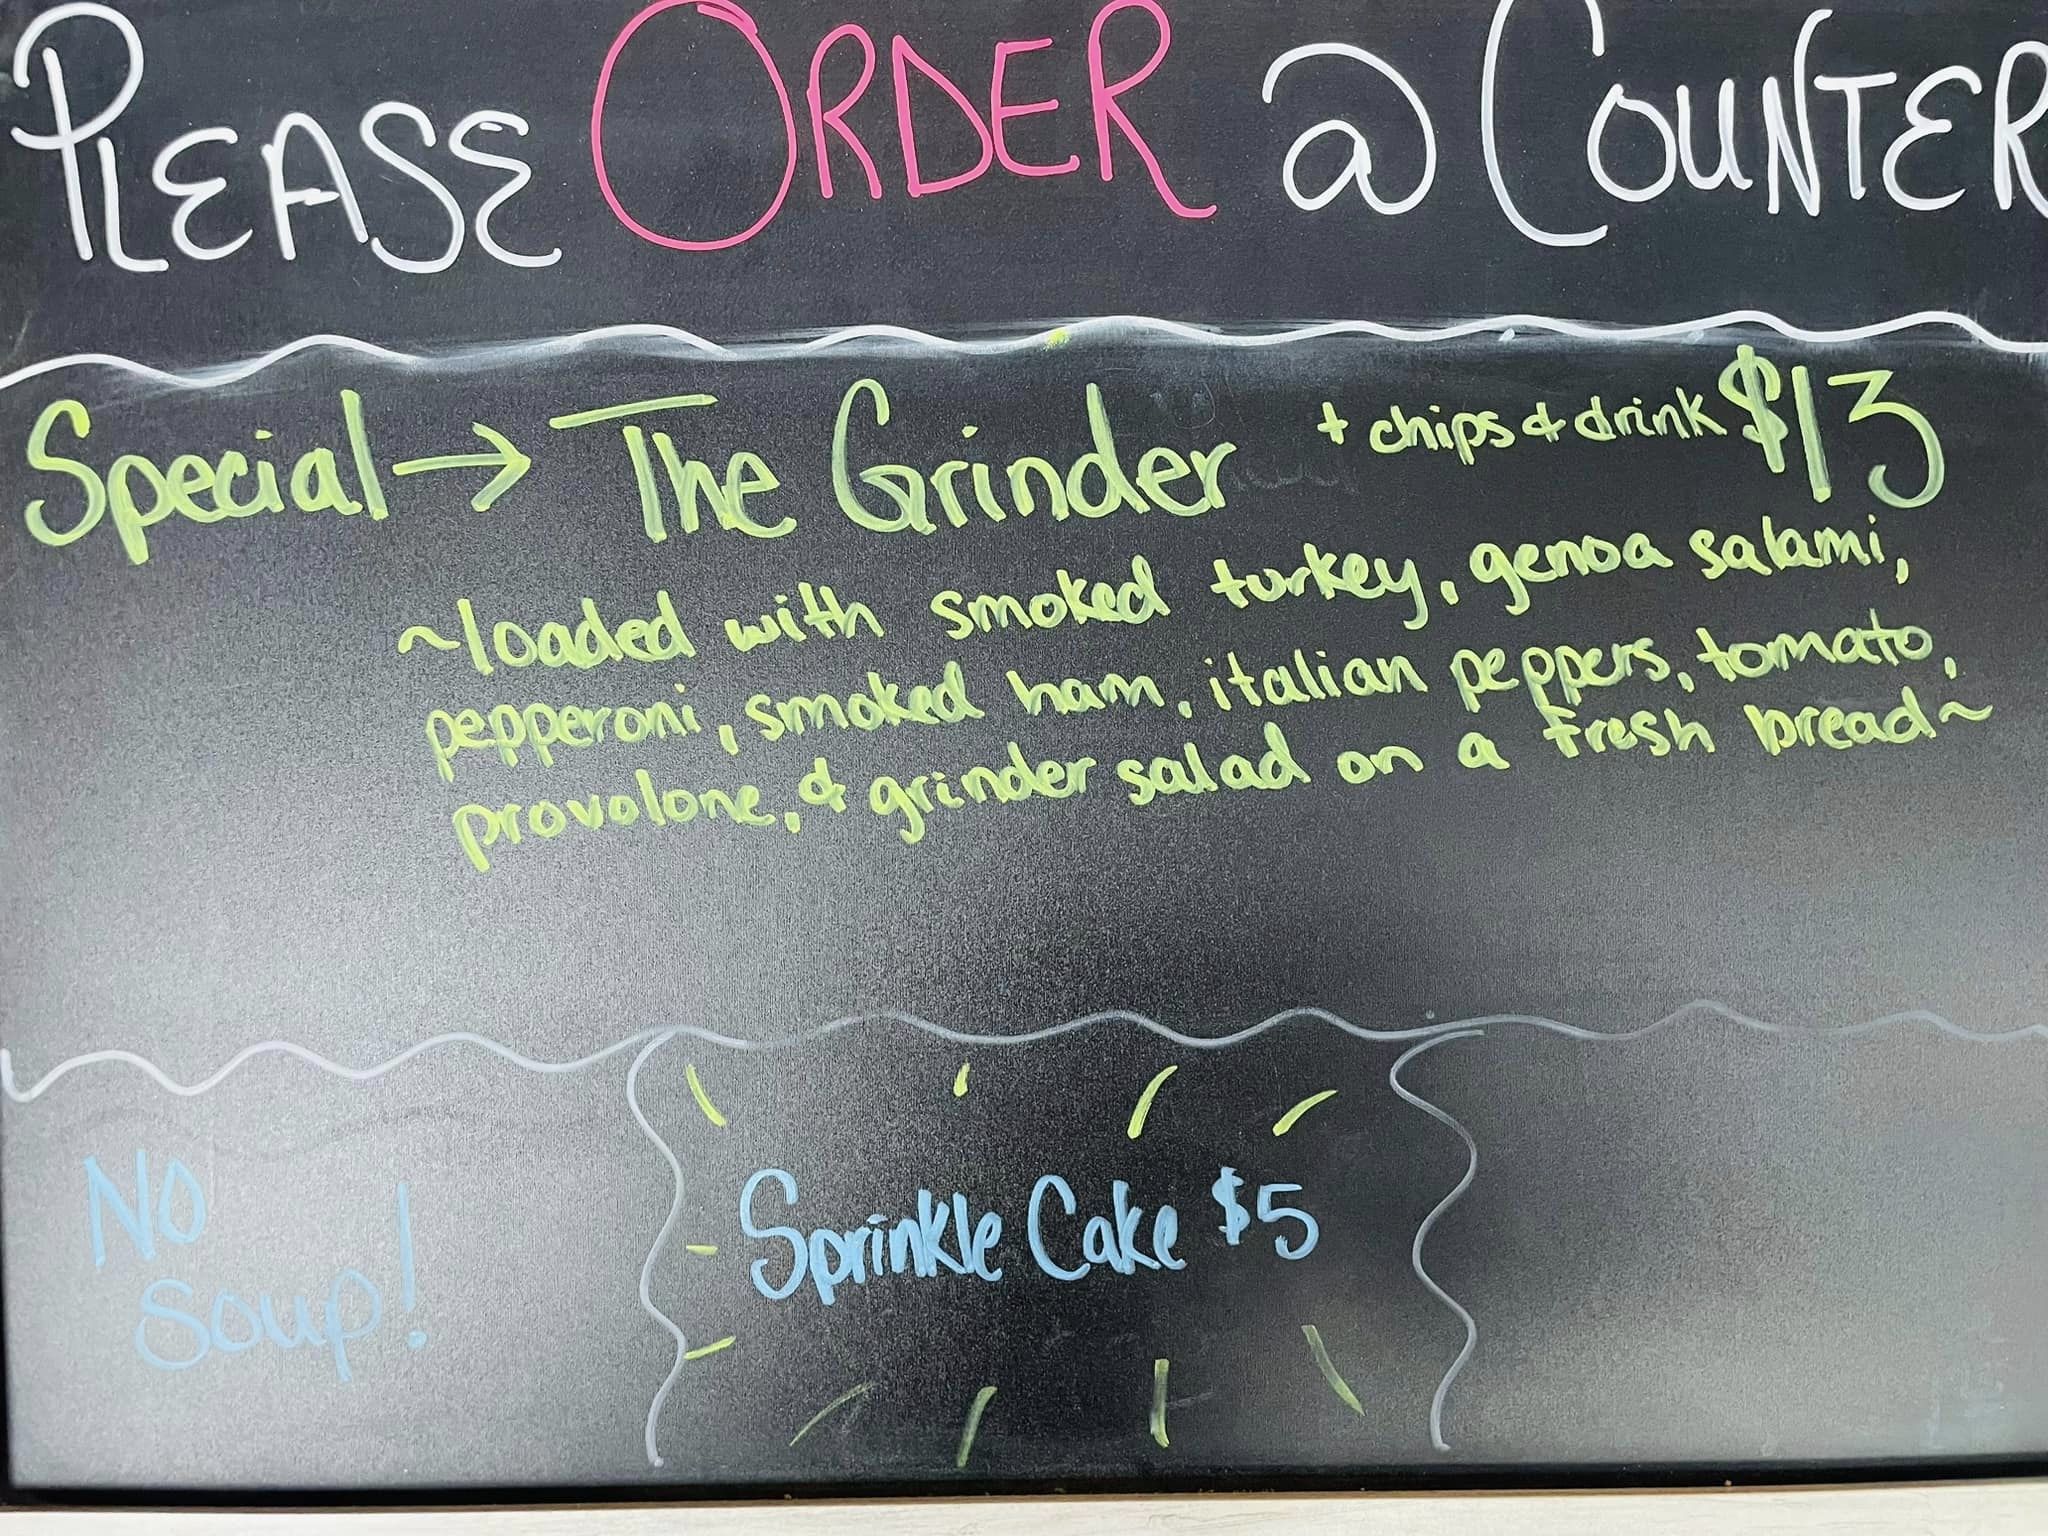 PLEASE ORDER @ COUNTER
Special → The Grinder + chips & drink $13
~loaded with smoked turkey, genoa salami,
pepperoni, smoked ham, italian peppers, tomato,
provolone, & grinder salad on a fresh bread~
No
Soup!
Sprinkle Cake $5